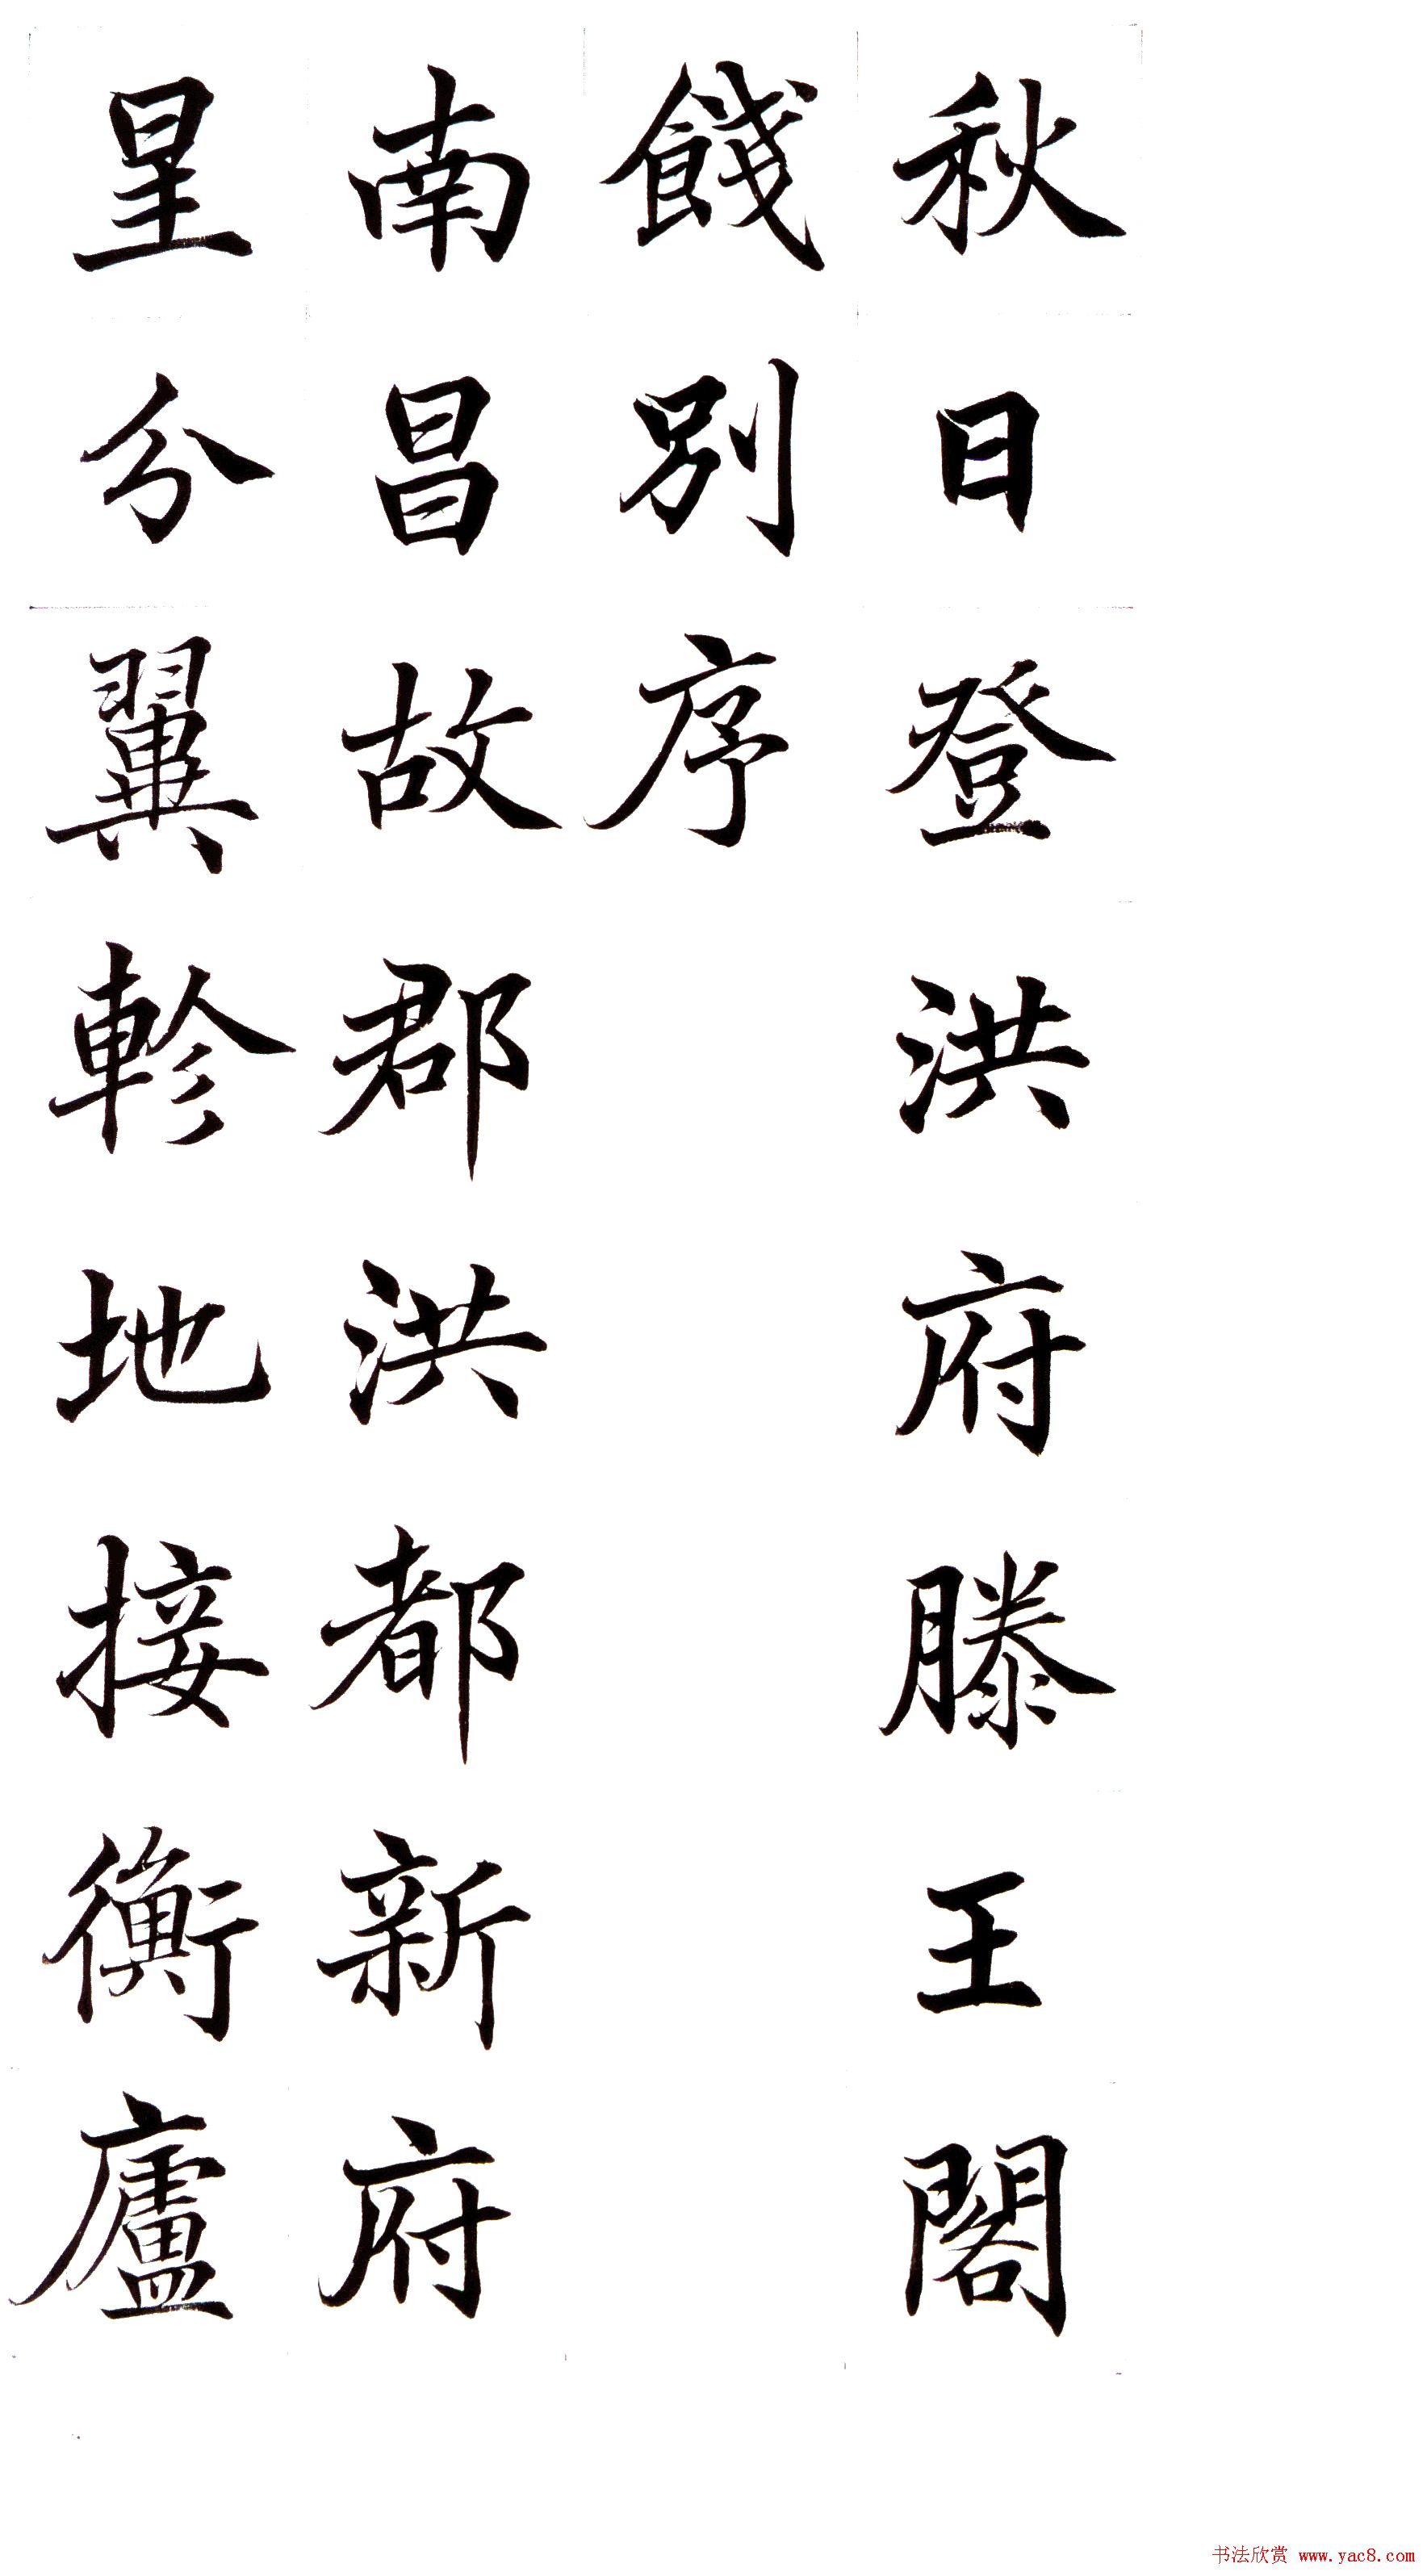 秋日登洪府滕王閣
餞別序
南昌故郡洪都新府
星分翼軫地接衡廬
书法欣赏 www.yac8.com